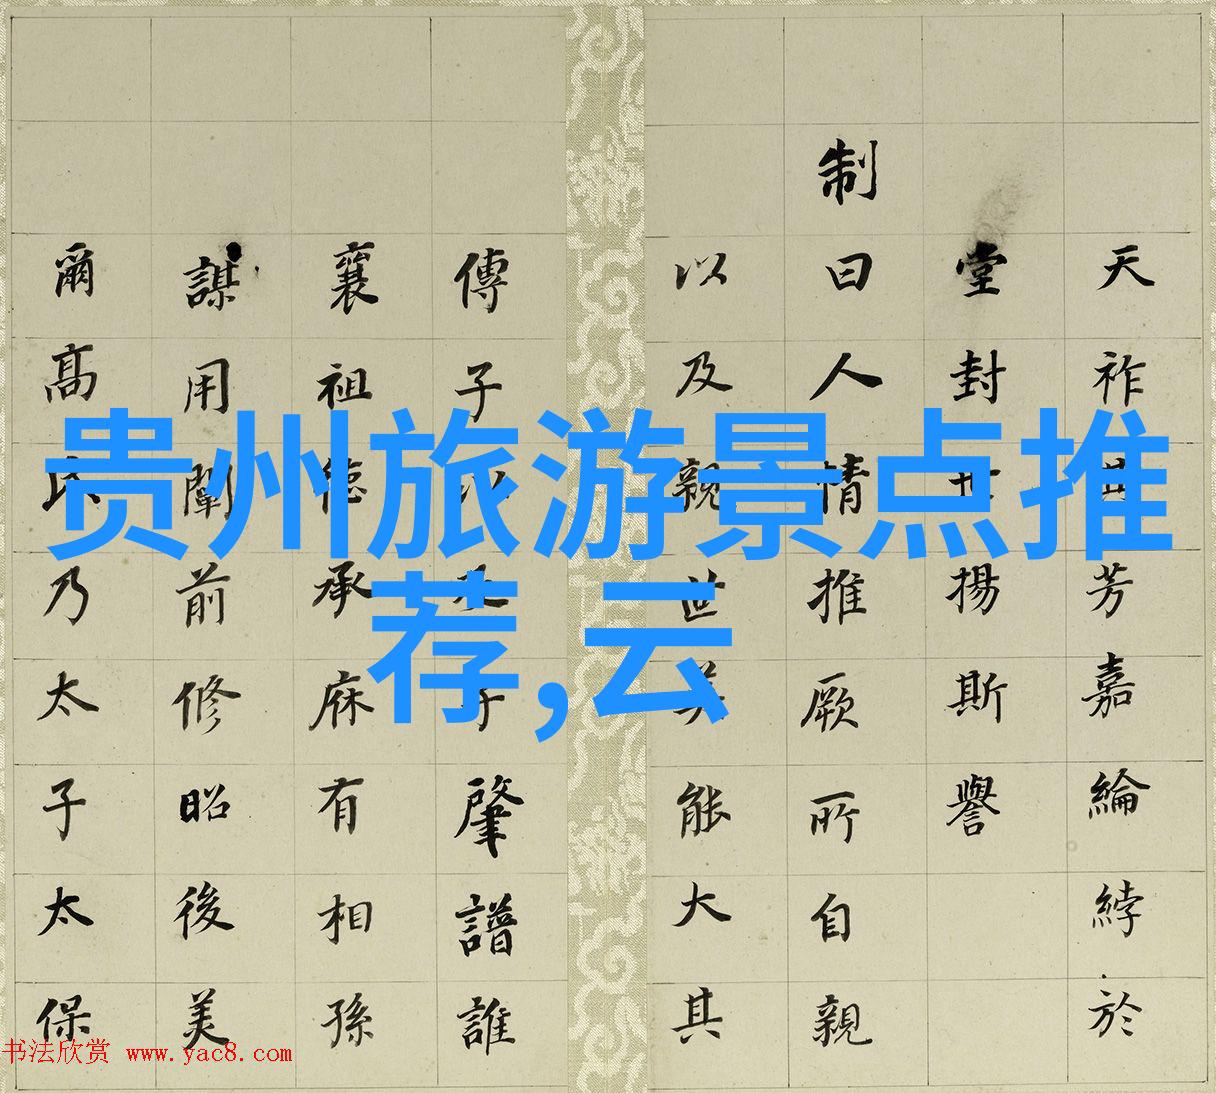 贵州旅游景点推
荐,云
天祚世芳嘉綸綍於
堂封世揚斯譽
制曰人情推厥所自親
以及親世美能大其
傳子以肇譜誰
襄祖德承庥有相孫
謀用闡前修昭後美
爾高氏乃太子太保
书法欣赏 www.yac8.com